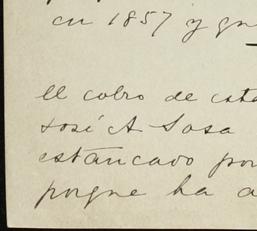 en 1857 y
el cobro de
José A Sosa
estancado por
porque ha a